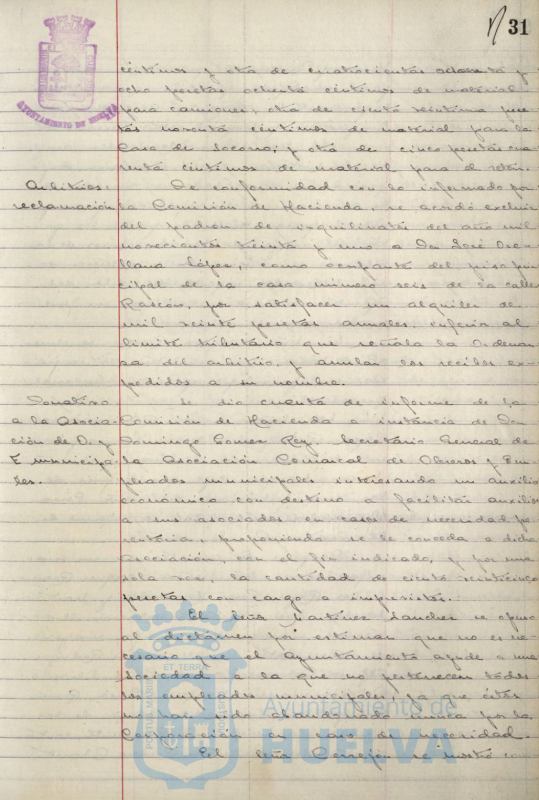 31
AYUNTAMIENTO DE HUELVA
céntimos y otra de cuatrocientas ochenta y
ocho pesetas ochenta céntimos de material
para camiones, otra de ciento veintiuna pese
tas noventa céntimos de material para la
Casa de Socorro, y otra de cinco pesetas cua
renta céntimos de material para el
Arbitrios:
reclamación
De conformidad con lo informado por
la Comisión de Hacienda, se acordó excluir
del padrón de inquilinatos del año mil
novecientos treinta y uno a Don José Ore
llana López, como ocupante del piso prin
cipal de la casa número seis de la calle
Rascón, por satisfacer un alquiler de
mil veinte pesetas anuales, inferior al
límite tributario que señala la Ordenan
za del arbitrio, y anular los recibos ex
pedidos a su nombre.
Donativo
a la Asocia-
ción de O. y
E. municipa-
les.
Se dio cuenta de informe de la
Comisión de Hacienda a instancia de Don
Domingo Gomez Rey, Secretario General de
la Asociación Comarcal de Obreros y Em
pleados municipales interesando un auxilio
económico con destino a facilitar auxilios
a sus asociados en casos de necesidad pe
rentoria, proponiendo se le conceda a dicha
Asociación, con el fin indicado, y por una
sola vez, la cantidad de ciento veinticinco
pesetas con cargo a imprevistos.
El Señor Martínez Sánchez se opuso
al dictámen por estimar que no es ne-
cesario que el Ayuntamiento ayude a una
Sociedad a la que no pertenecen todos
los empleados municipales, ya que éstos
no han sido abandonados nunca por la
Corporación en caso de necesidad.
El Señor Cerrejón se mostró con
PORTUS MARIS ET TERRAE CUSTODIA
Ayuntamiento de
HUELVA